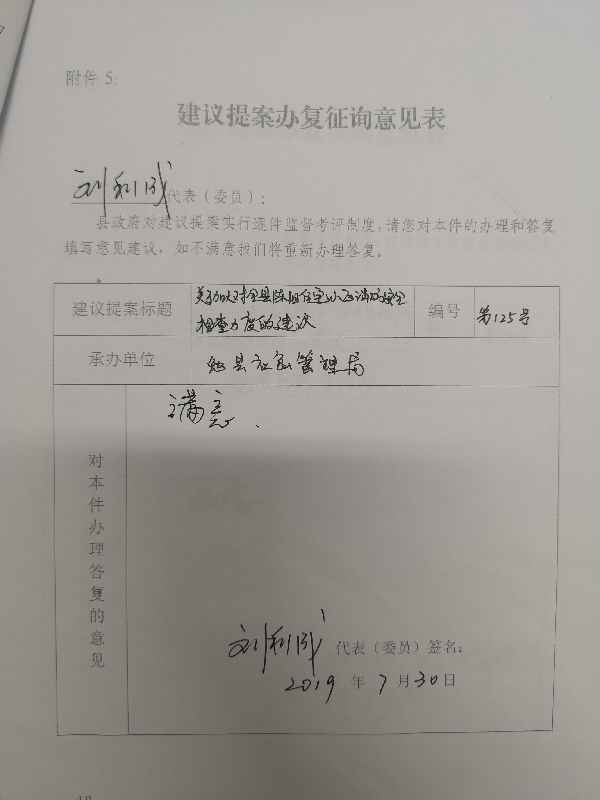 附件 5:
建议提案办复征询意见表
刘利成 代表（委员）：
县政府对建议提案实行逐件监督考评制度，请您对本件的办理和答复
填写意见建议，如不满意我们将重新办理答复。
建议提案标题
关于加大对全县陈旧住宅小区消防安全
检查力度的建议
编号
第125号
承办单位
勉县应急管理局
满意.
对本件办理答复的意见
刘利成 代表（委员）签名：
2019 年 7 月 30 日